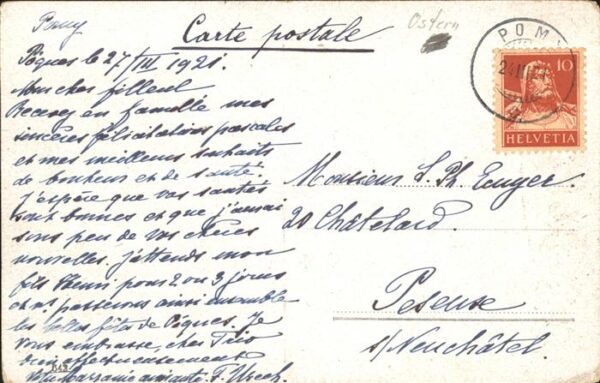 Pomy
Carte postale
Ostern
Pâques le 27/III 1921.
Mon cher filleul
Recevez en famille mes
sincères félicitations pascales
et mes meilleurs souhaits
de bonheur et de santé.
J'espère que vos santés
sont bonnes et que j'aurai
sous peu de vos chères
nouvelles. J'attends mon
fils Henri pour 2 ou 3 jours
et ns passerons ainsi ensemble
les belles fêtes de Pâques. Je
vous embrasse, cher Trio
bien affectueusement
Votre marraine aimante
POMY
24 III
10
HELVETIA
Monsieur Ph.
20 Châtelard.
Peseux
s/Neuchâtel